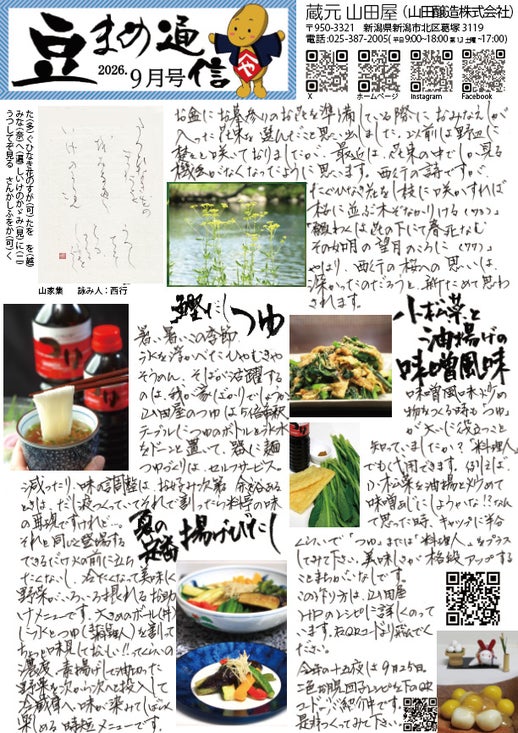 豆まめ通信
2026. 9月号
蔵元 山田屋（山田醸造株式会社）
〒950-3321 新潟県新潟市北区葛塚3119
電話:025-387-2005(平日9:00~18:00 第1,3土曜~17:00)
X ホームページ Instagram Facebook
お盆にお墓参りのお花を準備している際に、おみなえしが
入った花束を選んだこと思い出しました。以前は野辺に
咲いておりましたが、最近は、花束の中でしか見る
機会がなくなったように思います。西行の詩ですが、
たぐひなき花をし枝に咲かすれば
桜に並ぶ木ぞなかりける
「願わくは花の下にて春死なむ
その如月の望月のころに
やはり、西行の桜への思いは、
深かったのだろうと、改めて思わ
されます。
た(多)ぐひなき花のすが(可)たを
を(越)みな(奈)へ(遍)しいけのかゞみ(見)に(二)
うつしてぞ見る さんかしふをか(可)く
山家集 詠み人：西行
鰹だしつゆ
暑い暑いこの季節、
氷を浮かべたひやむぎや
そうめん、そばが活躍する
のは、我が家ばかりでしょうか。
山田屋のつゆは5倍希釈
テーブルにつゆのボトルと氷水
をドーンと置いて、器に麺
つゆづくりは、セルフサービス。
減ったり、味の調整はお好み次第。余裕ある
ときは、だし汁つくって、それで割ったら料亭の味
の再現ですけれど…。
夏の定番 揚げびたし
それと同じく登場する
できるだけ火の前に立ち
たくない、冷たくなって美味しく
野菜がいろいろ摂れるお助
けメニューです。大きめのボール(丼)
に氷とつゆ(調理人)を割って
ちょっと味見しておいしい!!ってくらいの
濃度、素揚げして油切った
野菜を次から次へと投入して
冷蔵庫へ。味が染みてしばらく
楽しめる時短メニューです。
小松菜と油揚げの味噌風味
味噌風味炒め
物をつくる時もつゆが
が大いに役立つこと
知っていましたか？「料理人」
でも代用できます。例えば、
小松菜を油揚と炒めて
味噌あじにしようかな!!なんて
思った時、キャップに半分
くらいで「つゆ」または「料理人」をプラス
してみて下さい。美味しさが格段アップする
ことまちがいなしです。
この作り方は、山田屋
HPのレシピに詳しくのって
います。右QRコードより飛んでく
ださい。
今年の十五夜は9月25日
二色お月見団子レシピを下のQR
コードでご紹介中です。
是非つくってみて下さい。